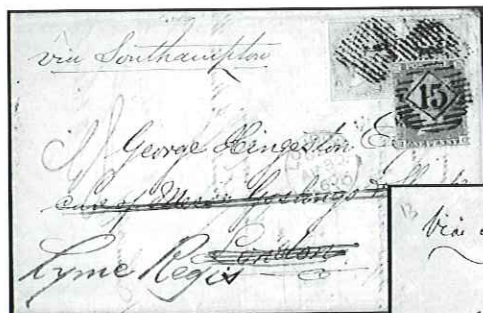 via Southampton
15
George Hingeston E
care of Mess Goslings &
London
Lyme Regis
B
Via